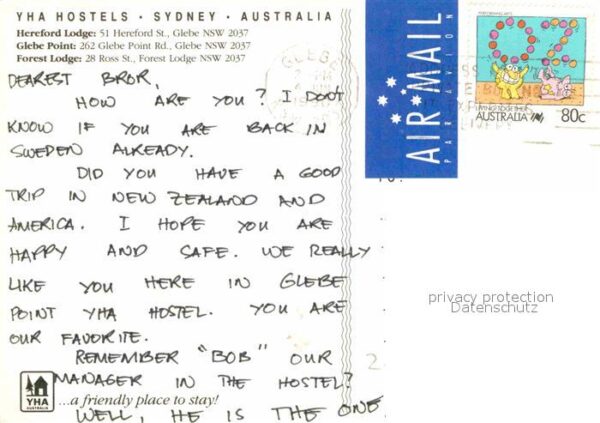 YHA HOSTELS · SYDNEY · AUSTRALIA
Hereford Lodge: 51 Hereford St., Glebe NSW 2037
Glebe Point: 262 Glebe Point Rd., Glebe NSW 2037
Forest Lodge: 28 Ross St., Forest Lodge NSW 2037
DEAREST BROR,
HOW ARE YOU? I DON'T
KNOW IF YOU ARE BACK IN
SWEDEN ALREADY.
DID YOU HAVE A GOOD
TRIP IN NEW ZEALAND AND
AMERICA. I HOPE YOU ARE
HAPPY AND SAFE. WE REALLY
LIKE YOU HERE IN GLEBE
POINT YHA HOSTEL. YOU ARE
OUR FAVORITE.
REMEMBER "BOB" OUR
MANAGER IN THE HOSTEL?
WELL, HE IS THE ONE
YHA
AUSTRALIA
...a friendly place to stay!
AIR MAIL
PAR AVION
PERFORMING ARTS
LIVING TOGETHER
AUSTRALIA 80c
GLEBE
privacy protection
Datenschutz